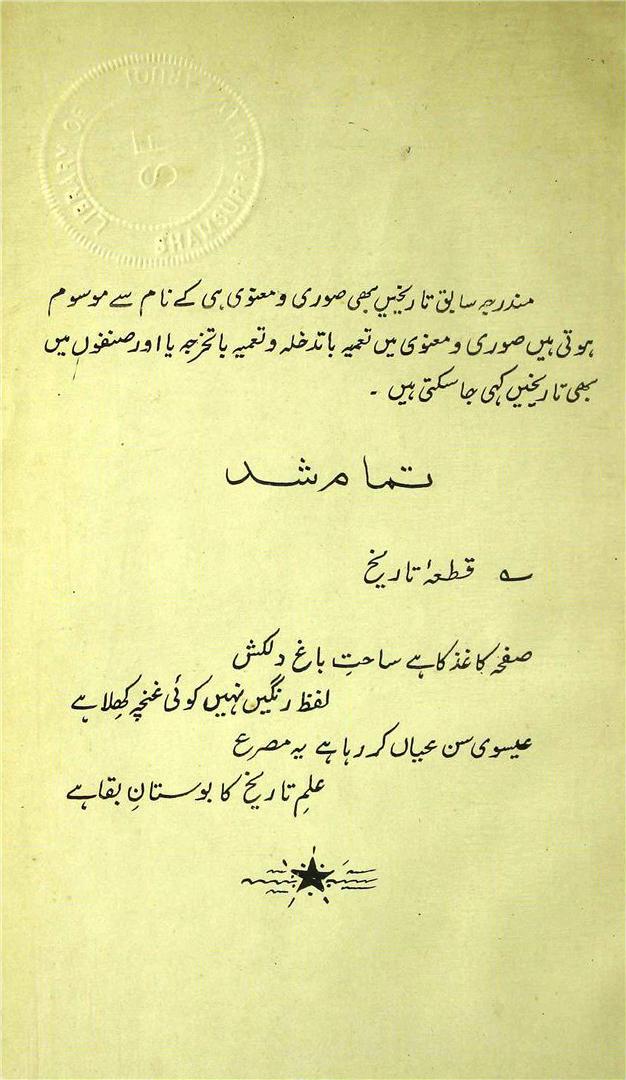 LIBRARY OF
SE
SHAMSUR R
مندرجہ سابق تاریخیں بھی صوری و معنوی ہی کے نام سے موسوم
ہوتی ہیں صوری و معنوی میں تعمیہ باتدخلہ و تعمیہ باتخرجہ یا اور صنفوں میں
بھی تاریخیں کہی جا سکتی ہیں ۔
تمام شد
؎ قطعۂ تاریخ
صفحہ کاغذ کا ہے ساحتِ باغ دلکش
لفظ رنگیں نہیں کوئی غنچہ کھلا ہے
عیسوی سن عیاں کر رہا ہے یہ مصرع
علمِ تاریخ کا بوستانِ بقا ہے